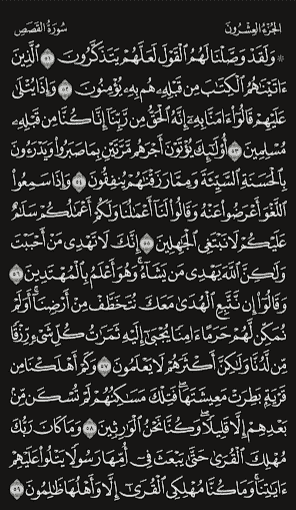 الجزء العشرون سورة القصص
۞ وَلَقَدْ وَصَّلْنَا لَهُمُ الْقَوْلَ لَعَلَّهُمْ يَتَذَكَّرُونَ ٥١ الَّذِينَ
ءَاتَيْنَاهُمُ الْكِتَابَ مِن قَبْلِهِ هُم بِهِ يُؤْمِنُونَ ٥٢ وَإِذَا يُتْلَى
عَلَيْهِمْ قَالُوا ءَامَنَّا بِهِ إِنَّهُ الْحَقُّ مِن رَّبِّنَا إِنَّا كُنَّا مِن قَبْلِهِ
مُسْلِمِينَ ٥٣ أُولَئِكَ يُؤْتَوْنَ أَجْرَهُم مَّرَّتَيْنِ بِمَا صَبَرُوا وَيَدْرَءُونَ
بِالْحَسَنَةِ السَّيِّئَةَ وَمِمَّا رَزَقْنَاهُمْ يُنفِقُونَ ٥٤ وَإِذَا سَمِعُوا
اللَّغْوَ أَعْرَضُوا عَنْهُ وَقَالُوا لَنَا أَعْمَالُنَا وَلَكُمْ أَعْمَالُكُمْ سَلَامٌ
عَلَيْكُمْ لَا نَبْتَغِي الْجَاهِلِينَ ٥٥ إِنَّكَ لَا تَهْدِي مَنْ أَحْبَبْتَ
وَلَكِنَّ اللَّهَ يَهْدِي مَن يَشَاءُ ۚ وَهُوَ أَعْلَمُ بِالْمُهْتَدِينَ ٥٦
وَقَالُوا إِن نَّتَّبِعِ الْهُدَى مَعَكَ نُتَخَطَّفْ مِنْ أَرْضِنَا ۚ أَوَلَمْ
نُمَكِّن لَّهُمْ حَرَمًا ءَامِنًا يُجْبَى إِلَيْهِ ثَمَرَاتُ كُلِّ شَيْءٍ رِّزْقًا
مِّن لَّدُنَّا وَلَكِنَّ أَكْثَرَهُمْ لَا يَعْلَمُونَ ٥٧ وَكَمْ أَهْلَكْنَا مِن
قَرْيَةٍ بَطِرَتْ مَعِيشَتَهَا ۖ فَتِلْكَ مَسَاكِنُهُمْ لَمْ تُسْكَن مِّن
بَعْدِهِمْ إِلَّا قَلِيلًا ۖ وَكُنَّا نَحْنُ الْوَارِثِينَ ٥٨ وَمَا كَانَ رَبُّكَ
مُهْلِكَ الْقُرَى حَتَّى يَبْعَثَ فِي أُمِّهَا رَسُولًا يَتْلُوا عَلَيْهِمْ
ءَايَاتِنَا ۚ وَمَا كُنَّا مُهْلِكِي الْقُرَى إِلَّا وَأَهْلُهَا ظَالِمُونَ ٥٩